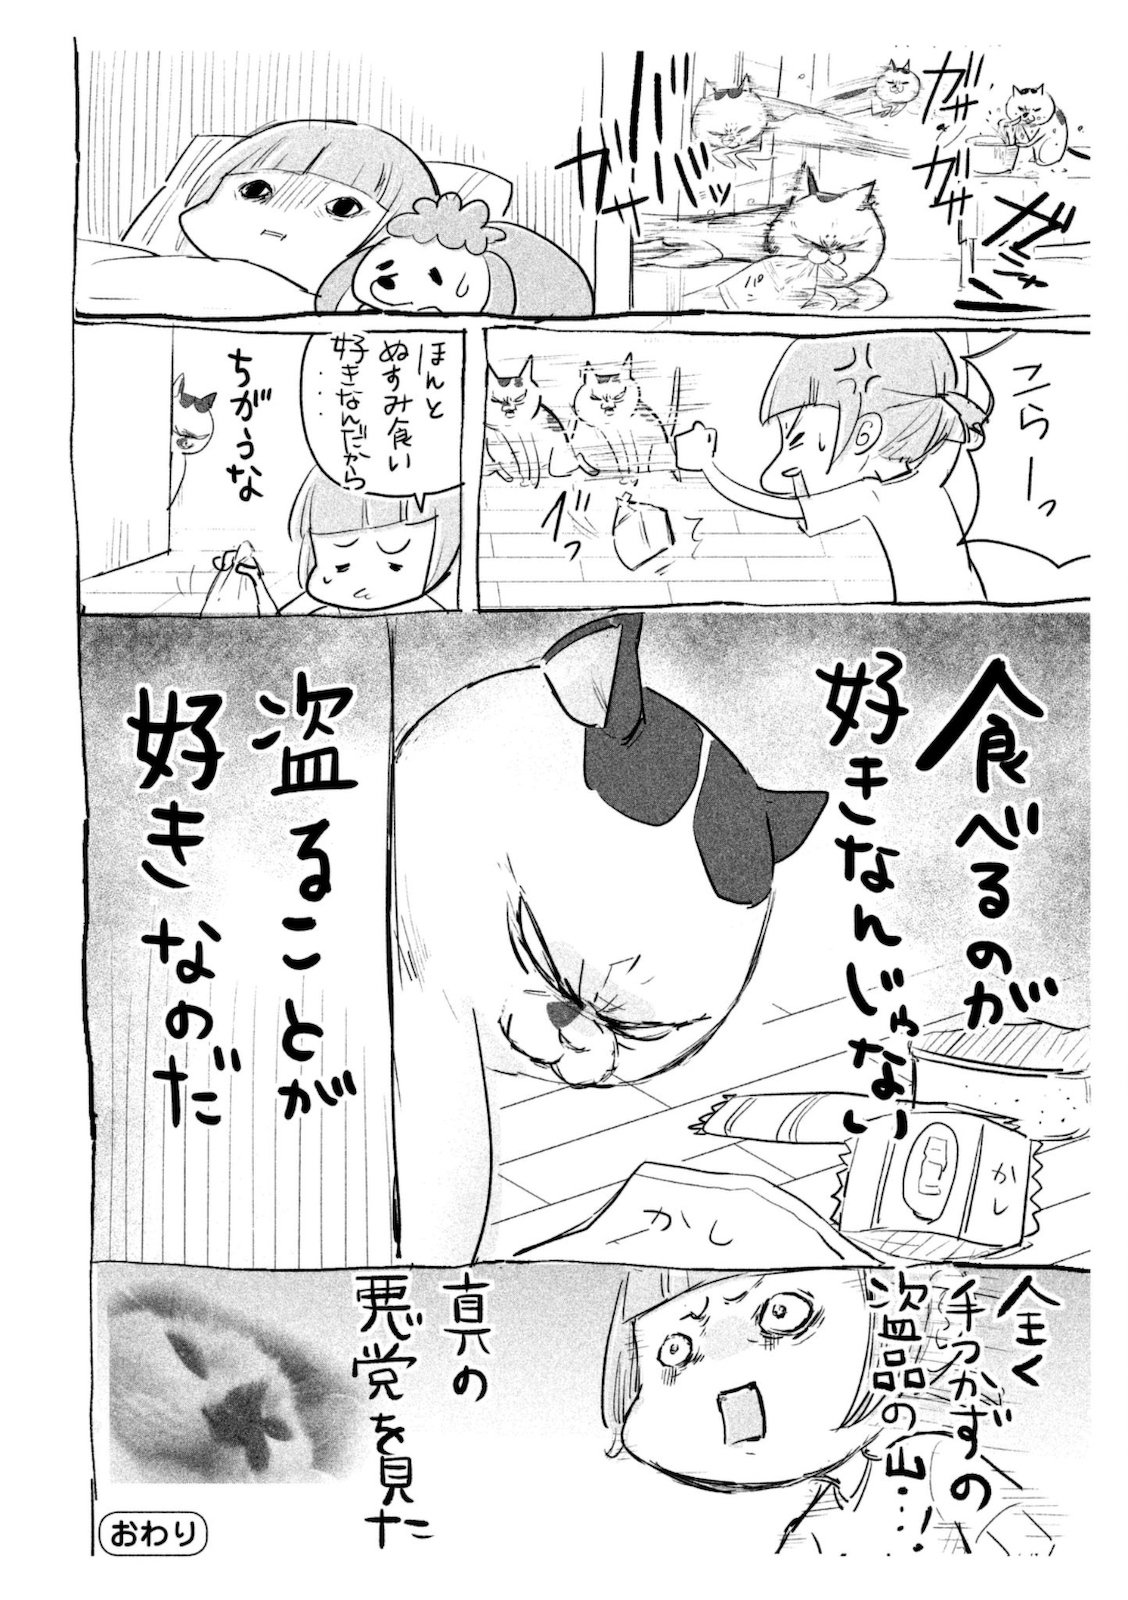 ガサ
ガサ
ガシャ
ガサ
こらーっ
ビクッ
ほんと
ぬすみ食い
好きなんだから
・・・
ちがうな
食べるのが
好きなんじゃない
盗ることが
好きなのだ
かし
かし
全く
手つかずの
盗品の山…!
真の
悪党を見た
おわり